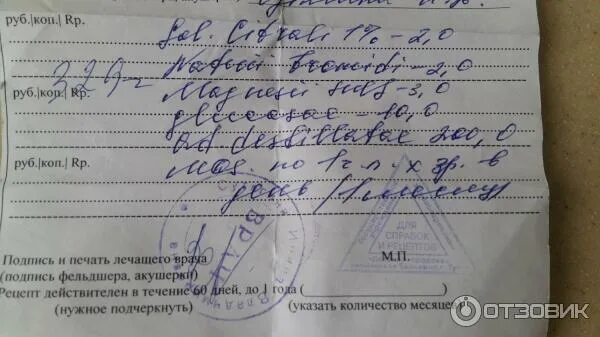 руб.|коп.| Rp.
Sol. Citrali 1% - 2,0
Natrii bromidi - 2,0
329-
Magnesii sulf - 3,0
руб.|коп.| Rp.
glucosae - 10,0
Aq destillatae 200,0
руб.|коп.| Rp.
MDS. по 1 ч.л. х 3р. в
день /1 месяц
ВРАЧ
ДЛЯ
СПРАВОК
И РЕЦЕПТОВ
Подпись и печать лечащего врача
М.П.
(подпись фельдшера, акушерки)
Рецепт действителен в течение 60 дней, до 1 года (
)
(нужное подчеркнуть)
(указать количество месяцев)
ОТЗОВИК